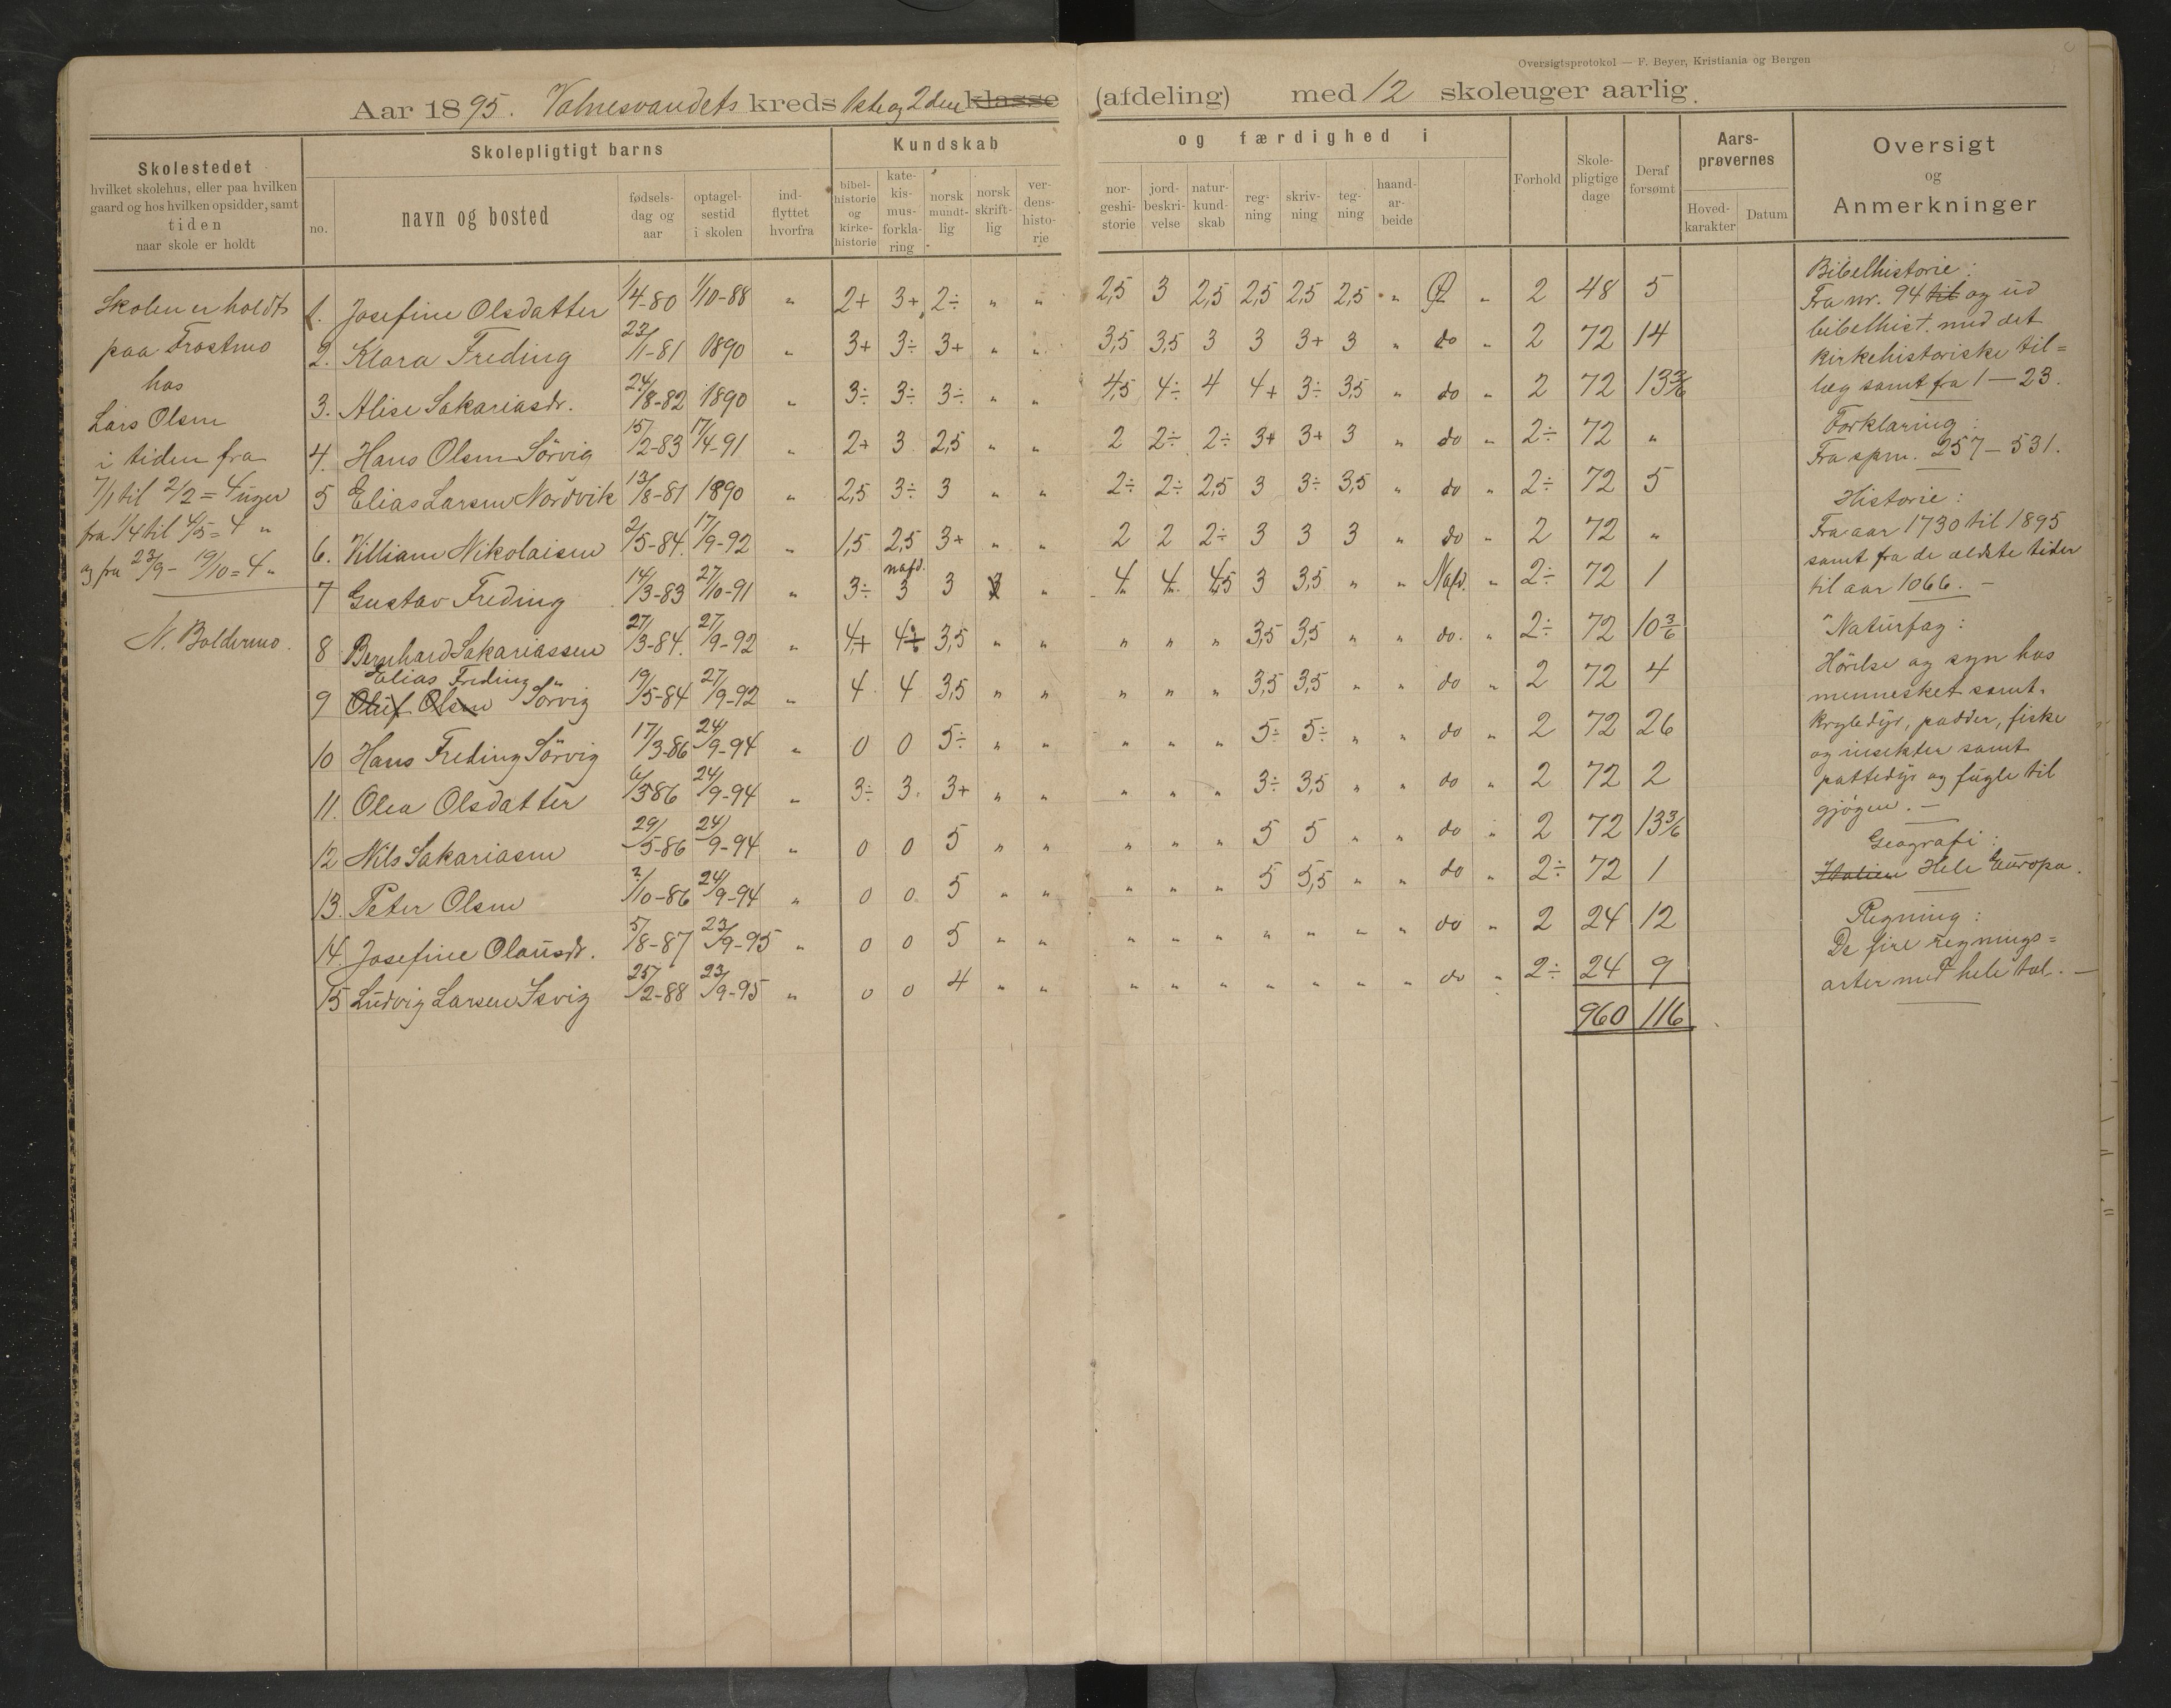 Oversigtsprotokol — F. Beyer, Kristiania og Bergen
Aar 1895. Valnesvandets kreds 1ste og 2den klasse (afdeling) med 12 skoleuger aarlig.
Skolestedet
hvilket skolehus, eller paa hvilken
gaard og hos hvilken opsidder, samt
tiden
naar skole er holdt
Skolepligtigt barns
no.
navn og bosted
fødsels-
dag og
aar
optagel-
sestid
i skolen
ind-
flyttet
hvorfra
Kundskab og færdighed i
bibel-
historie
og
kirke-
historie
kate-
kis-
mus-
forkla-
ring
norsk
mundt-
lig
norsk
skrift-
lig
ver-
dens-
histo-
rie
nor-
geshi-
storie
jord-
beskri-
velse
natur-
kund-
skab
reg-
ning
skriv-
ning
teg-
ning
haand-
ar-
beide
Forhold
Skole-
pligtige
dage
Deraf
forsømt
Aars-
prøvernes
Hoved-
karakter
Datum
Oversigt
og
Anmerkninger
Skolen er holdt
paa Frostmo
hos
Lars Olsen
i tiden fra
7/1 til 2/2 = 4 uger
fra 1/4 til 4/5 = 4 "
og fra 23/9 - 19/10 = 4 "
N. Boldermo.
1. Josefine Olsdatter 1/4-80 1/10-88 " 2+ 3+ 2÷ " " 2,5 3 2,5 2,5 2,5 2,5 " " 2 48 5
2. Klara Freding 23/11-81 1890 " 3+ 3÷ 3+ " " 3,5 3,5 3 3 3+ 3 " do " 2 72 14
3. Alise Sakariasdr. 24/8-82 1890 " 3÷ 3÷ 3÷ " " 4,5 4÷ 4 4+ 3÷ 3,5 " do " 2 72 13 3/6
4. Hans Olsen Sörvig 15/2-83 17/4-91 " 2+ 3 2,5 " " 2 2÷ 2÷ 3+ 3+ 3 " do " 2÷ 72 "
5 Elias Larsen Nordvik 13/8-81 1890 " 2,5 3÷ 3 " " 2÷ 2÷ 2,5 3 3÷ 3,5 " do " 2÷ 72 5
6. Villiam Nikolaisen 2/5-84. 17/9-92 " 1,5 2,5 3+ " " 2 2 2÷ 3 3 3 " do " 2 72 "
7 Gustav Freding 14/3-83 27/10-91 " 3÷ nafd. 3 3 " 4 4 4,5 3 3,5 " " Nafd. " 2÷ 72 1
8 Bernhard Sakariassen 27/3-84. 27/9-92 " 4+ 4÷ 3,5 " " " " " 3,5 3,5 " " do. " 2÷ 72 10 3/6
Elias Freding "
9 Oluf Olsen Sörvig 19/5-84 27/9-92 " 4 4 3,5 " " " " " 3,5 3,5 " " do " 2 72 4
10 Hans Freding Sörvig 17/3-86 24/9-94 " 0 0 5÷ " " " " " 5÷ 5÷ " " do " 2 72 26
11. Olea Olsdatter 6/3 86 24/9-94 " 3÷ 3 3+ " " " " " 3÷ 3,5 " " do " 2 72 2
12 Nils Sakariasen 29/5-86 24/9-94 " 0 0 5 " " " " " 5 5 " " do " 2 72 13 3/6
13. Peter Olsen 2/10-86 24/9-94 " 0 0 5 " " " " " 5 5,5 " " do " 2÷ 72 1
14. Josefine Olausdr. 5/8-87 23/9-95 " 0 0 5 " " " " " " " " " do " 2 24 12
15 Ludvig Larsen Isvig 25/2-88 23/9-95 " 0 0 4 " " " " " " " " " do " 2÷ 24 9
960 116
Bibelhistorie:
Fra nr. 94 til og ud
bibelhist. med det
kirkehistoriske til=
læg samt fra 1 — 23.
Forklaring:
Fra spm. 257 — 531.
Historie:
Fra aar 1730 til 1895
samt fra de ældste tider
til aar 1066. —
Naturfag:
Hörelse og syn hos
mennesket samt
krybdyr, padder, fiske
og insekter samt
pattedyr og fugle til
gjøgen. —
Geografi:
Italien Hele Europa.
Regning:
De fire regnings=
arter med hele tal. —